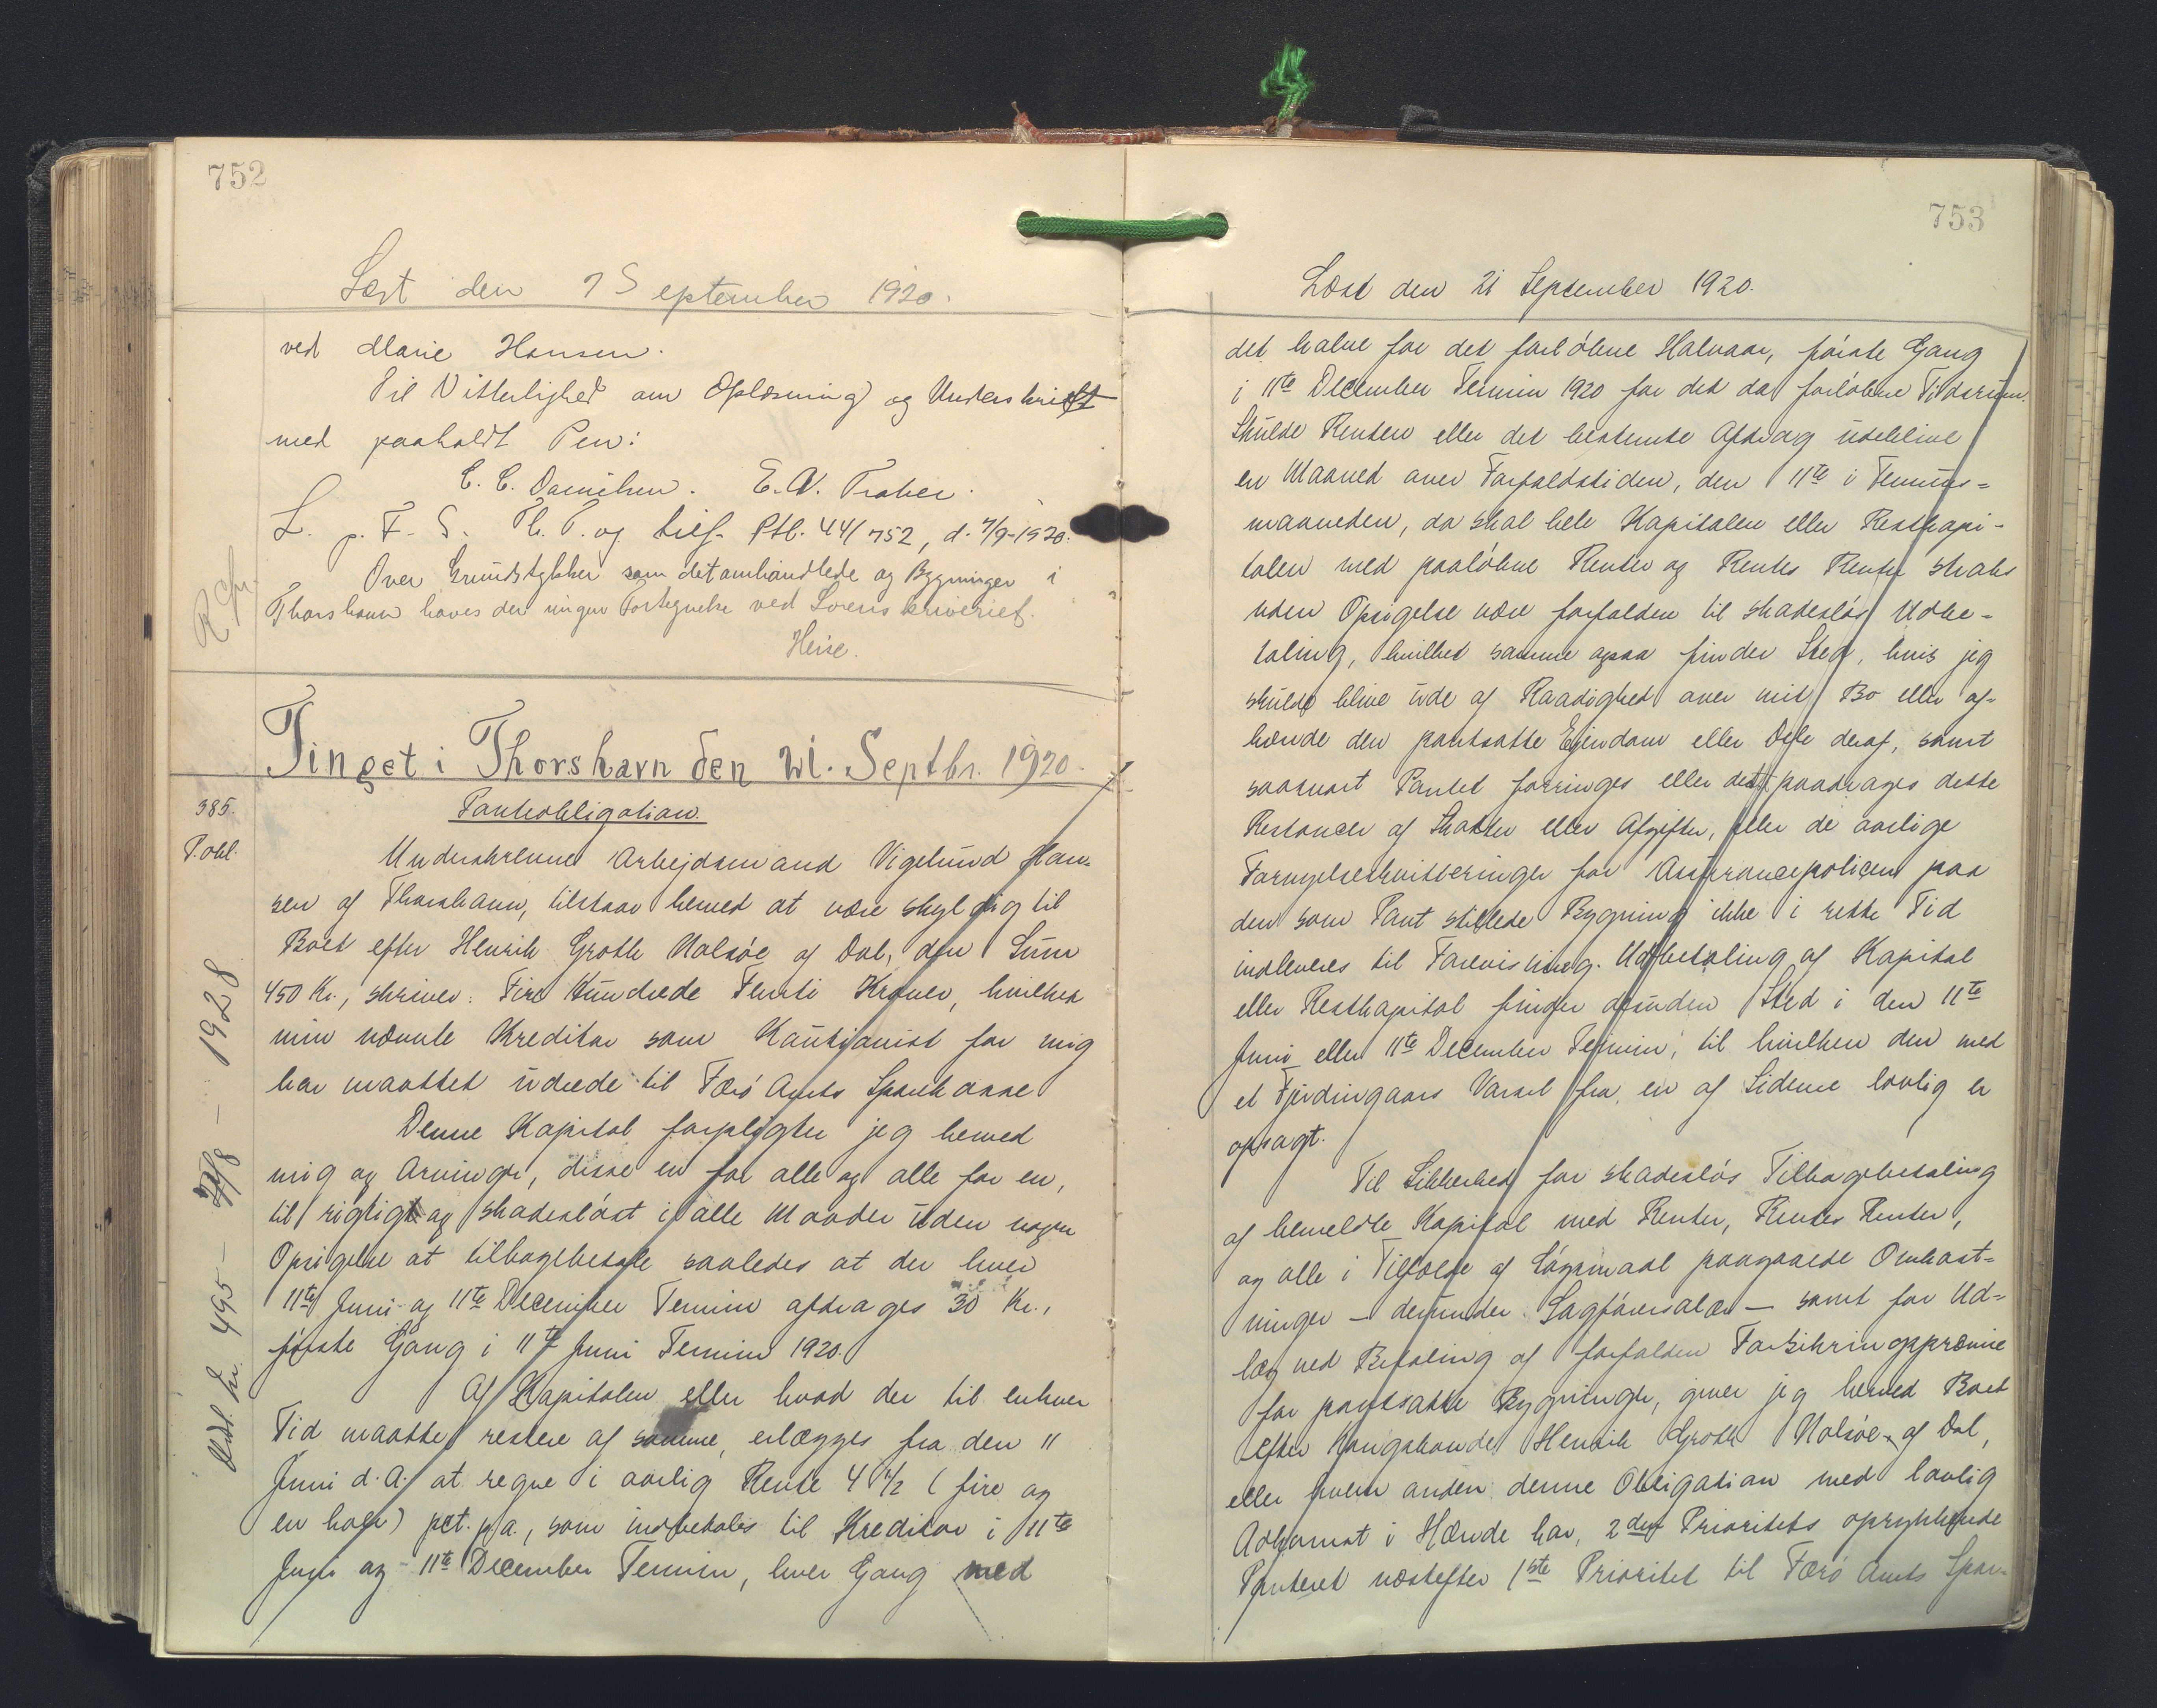 752
Læst den 7 September 1920.
ved Marie Hansen.
Til Vitterlighed om Oplæsning og Underskrift
med paaholdt Pen:
C. C. Danielsen. E. A.
L. p. F. S. Th. P. og Ptb. 44/752, d. 7/9-1920.
Over Grundstykker som det omhandlede og Bygninger i
Thorshavn haves der ingen Fortegnelse ved Sorenskriveriet.
Heise.
Tinget i Thorshavn den 21. Septbr. 1920.
385.
P.obl.
Panteobligation.
Underskrevne Arbejdsmand Vigelund Han-
sen af Thorshavn, tilstaar herved at være skyldig til
Boet efter Henrik Groth Nolsøe af Dal, den Sum
450 Kr., skriver: Fire Hundrede Femti Kroner, hvilken
min nævnte Kreditor som Kautionist for mig
har maattet udrede til Færø Amts Sparekasse
Denne Kapital forpligter jeg herved
mig og Arvinger, disse en for alle og alle for en,
til rigtigt og skadesløst i alle Maader uden nogen
Opsigelse at tilbagebetale saaledes at der hver
11te Juni og 11te December Termin afdrages 30 Kr.,
første Gang i 11te Juni Termin 1920.
Af Kapitalen eller hvad der til enhver
Tid maatte restere af samme, erlægges fra den 11
Juni d. A. at regne i aarlig Rente 4 1/2 (fire og
en halv) pct. p.a., som indbetales til Kreditor i 11te
Juni og 11te December Termin, hver Gang med
Udsl. fr. 495 - /8 - 1928
753
Læst den 21 September 1920.
det halve for det forløbne Halvaar, første Gang
i 11te December Termin 1920 for det da forløbne Tidsrum.
Skulde Renten eller det bestemte Afdrag udeblive
en Maaned over Forfaldstiden, den 11te i Termins=
maaneden, da skal hele Kapitalen eller Restkapi-
talen med paaløbne Renter og Rentes Renter straks
uden Opsigelse være forfalden til skadesløs Udbe-
taling, hvilket samme ogsaa finder Sted, hvis jeg
skulde blive ude af Raadighed over mit Bo eller af-
hænde den pantsatte Ejendom eller Dele deraf, samt
saasnart Pantet forringes eller det paadrages dette
Restancer af Skatter eller Afgifter, eller de aarlige
Fornyelseskvitteringer for Assurancepolicen paa
den som Pant stillede Bygning ikke i rette Tid
indleveres til Forevisning. Udbetaling af Kapital
eller Restkapital finder desuden Sted i den 11te
Juni eller 11te December Termin, til hvilken den med
et Fjerdingaars Varsel fra en af Siderne lovlig er
opsagt.
Til Sikkerhed for skadesløs Tilbagebetaling
af bemeldte Kapital med Renter, Rentes Renter,
og alle i Tilfælde af Søgsmaal paagaaede Omkost=
ninger — derunder Sagførersalær — samt for Ud=
læg ved Betaling af forfalden Forsikringspræmie
for pantsatte Bygninger, giver jeg herved Boet
efter Kongsbonde Henrik Groth Nolsøe af Dal,
eller hvem anden denne Obligation med lovlig
Adkomst i Hænde har, 2den Prioritets oprykkende
Panteret næstefter 1ste Prioritet til Færø Amts Spare-